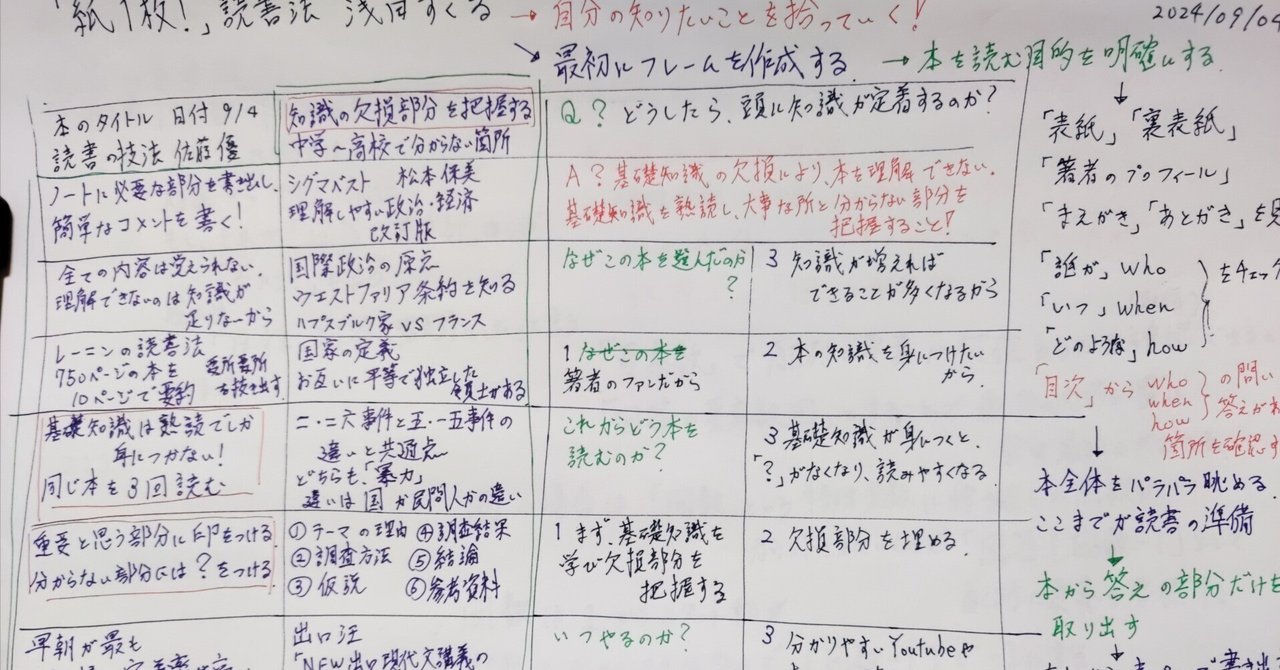 「紙1枚!」読書法 浅田すぐる → 自分の知りたいことを拾っていく!
2024/09/04
最初にフレームを作成する → 本を読む目的を明確にする
本のタイトル 日付 9/4
読書の技法 佐藤優
ノートに必要な部分を書き出し、
簡単なコメントを書く!
全ての内容は覚えられない。
理解できないのは知識が
足りないから
レーニンの読書法
750ページの本を
10ページで要約
要所要所
を抜き出す。
基礎知識は熟読でしか
身につかない!
同じ本を3回読む
重要と思う部分に印をつける
分からない部分には?をつける
早朝が最も
知識の欠損部分を把握する
中学〜高校で分からない箇所
シグマベスト 松本保美
理解しやすい政治・経済
改訂版
国際政治の原点
ウエストファリア条約を知る
ハプスブルク家 VS フランス
国家の定義
お互いに平等で独立した
領土がある
二・二六事件と五・一五事件の
違いと共通点
どちらも、「暴力」
違いは国か民間人かの違い
① テーマの理由 ④ 調査結果
② 調査方法 ⑤ 結論
③ 仮説 ⑥ 参考資料
出口汪
「NEW出口現代文講義の
Q? どうしたら、頭に知識が定着するのか?
A? 基礎知識の欠損により、本を理解できない。
基礎知識を熟読し、大事な所と分からない部分を
把握すること!
なぜこの本を選んだのか
?
3 知識が増えれば
できることが多くなるから
1 なぜこの本を
著者のファンだから
2 本の知識を身につけたい
から。
これからどう本を
読むのか?
3 基礎知識が身につくと、
「?」がなくなり、読みやすくなる
1 まず、基礎知識を
学び欠損部分を
把握する
2 欠損部分を埋める。
いつやるのか?
3 分かりやすいYoutubeや
↓
「表紙」「裏表紙」
「著者のプロフィール」
「まえがき」「あとがき」を見
「誰が」who
「いつ」when
「どのような」how
をチェック
「目次」から who
when
how
の問い
答えが
箇所を確認す
↓
本全体をパラパラ眺める。
ここまでが読書の準備
↓
本から答えの部分だけを
取り出す
↓